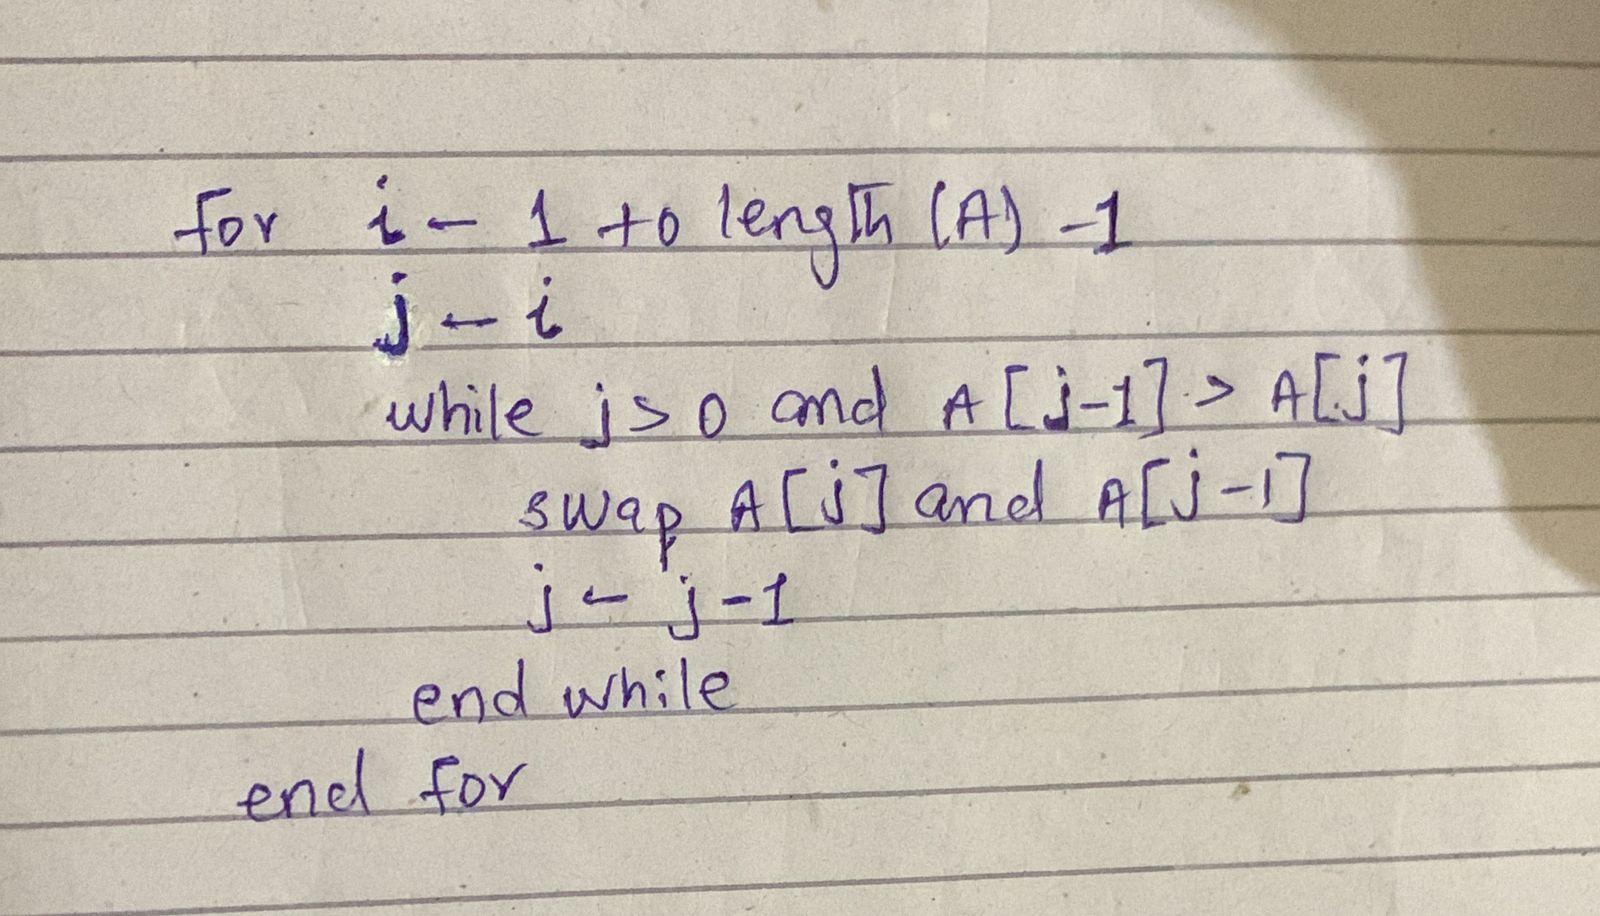 for i ← 1 to length (A) -1
j ← i
while j > 0 and A[j-1] > A[j]
swap A[j] and A[j-1]
j ← j-1
end while
end for